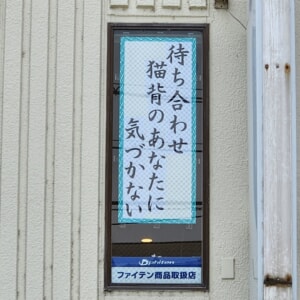 待ち合わせ
猫背のあなたに
気づかない
Phiten
ファイテン商品取扱店